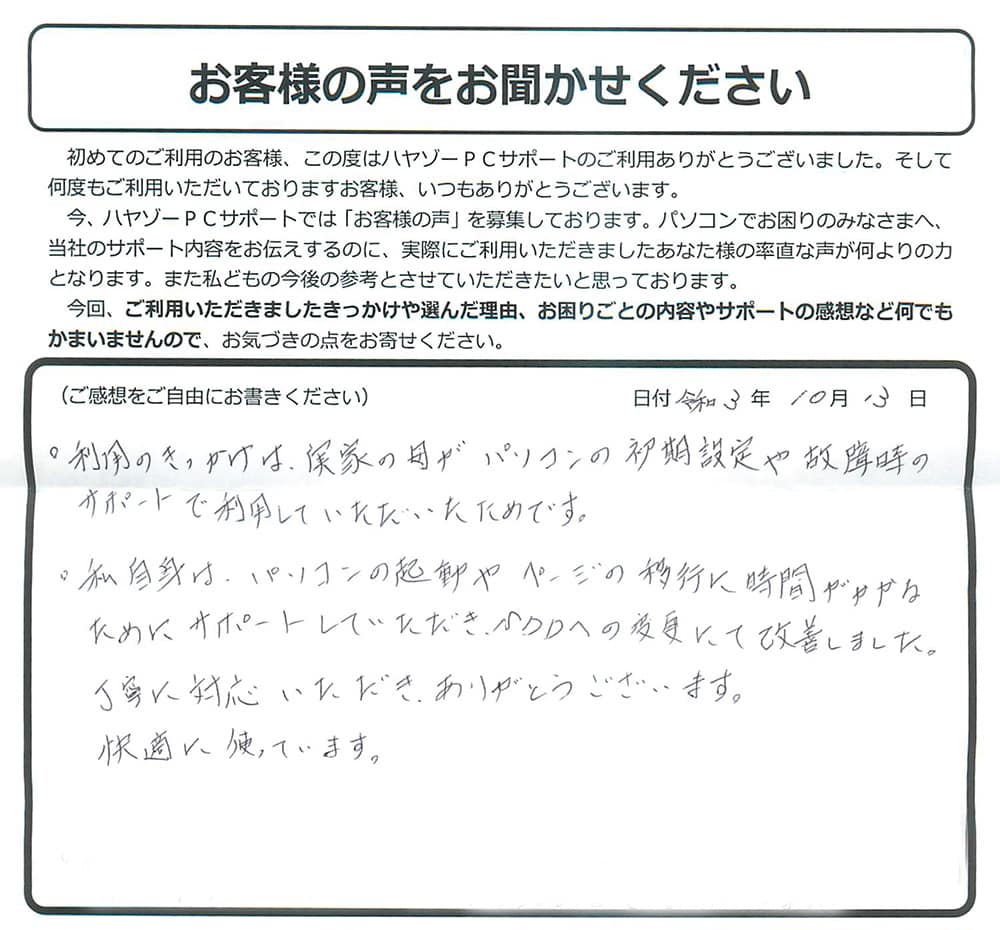 お客様の声をお聞かせください
初めてのご利用のお客様、この度はハヤゾーPCサポートのご利用ありがとうございました。そして
何度もご利用いただいておりますお客様、いつもありがとうございます。
今、ハヤゾーPCサポートでは「お客様の声」を募集しております。パソコンでお困りのみなさまへ、
当社のサポート内容をお伝えするのに、実際にご利用いただきましたあなた様の率直な声が何よりの力
となります。また私どもの今後の参考とさせていただきたいと思っております。
今回、ご利用いただきましたきっかけや選んだ理由、お困りごとの内容やサポートの感想など何でも
かまいませんので、お気づきの点をお寄せください。
（ご感想をご自由にお書きください） 日付 令和3年 10月 13日
。利用のきっかけは、家の母が パソコンの 初期設定や 故障時の
サポートで利用していただいたためです。
。私自身は、パソコンの起動や ページの 移行に時間がかかる
ために サポートしていただき、への変更にて改善しました。
丁寧に対応 いただき、ありがとうございます。
快適に 使っています。